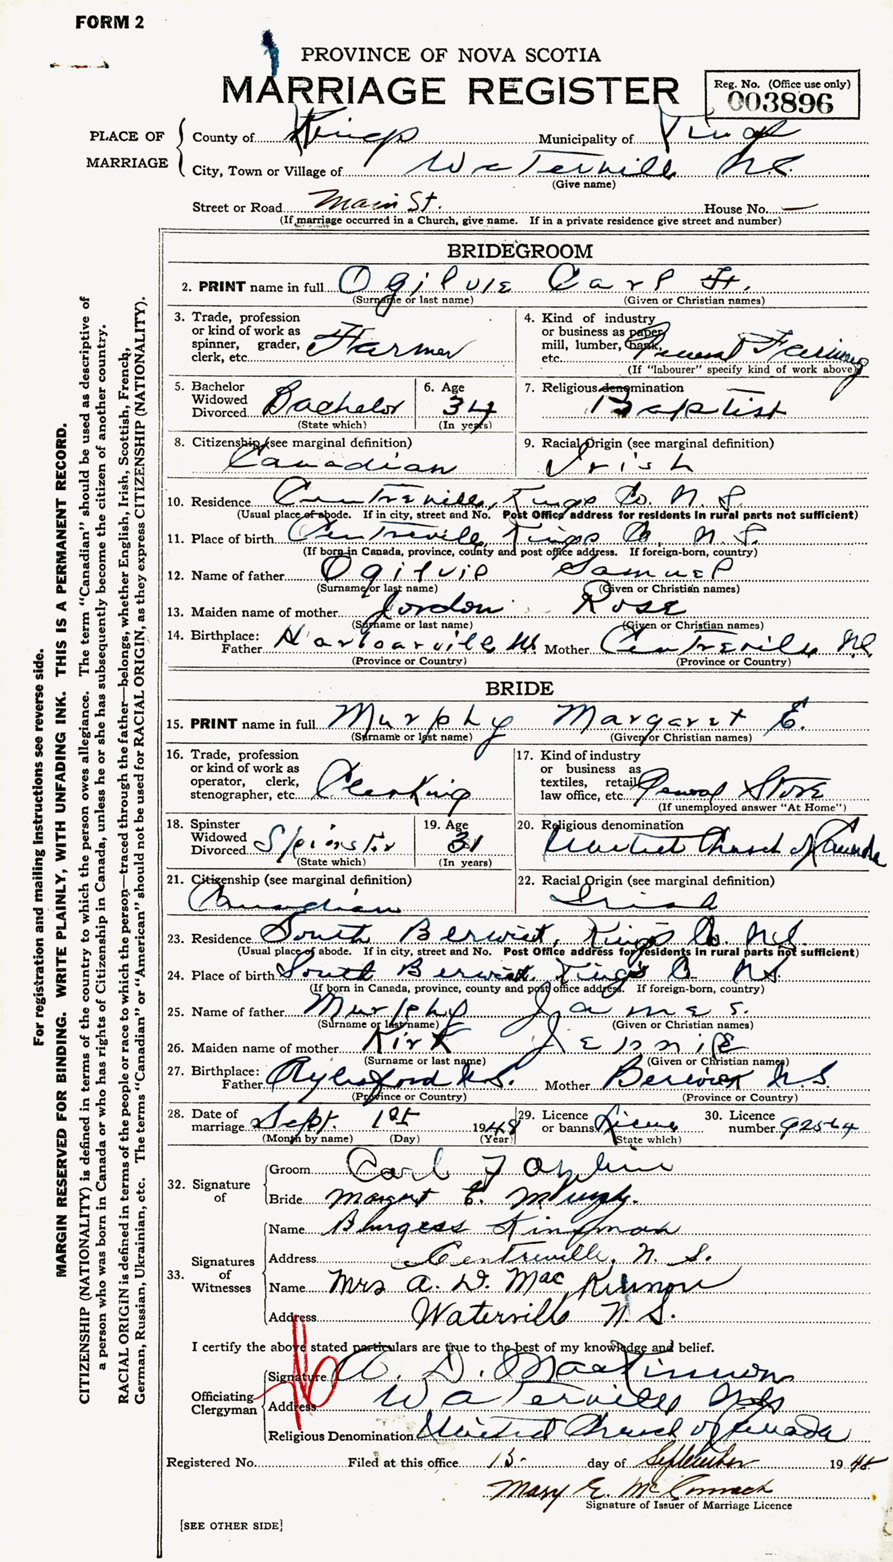 FORM 2
PROVINCE OF NOVA SCOTIA
MARRIAGE REGISTER
Reg. No. (Office use only)
003896
PLACE OF MARRIAGE
County of Kings Municipality of Kings
City, Town or Village of Waterville N.S.
(Give name)
Street or Road Main St. House No. —
(If marriage occurred in a Church, give name. If in a private residence give street and number)
BRIDEGROOM
2. PRINT name in full Ogilvie Carl F.
(Surname or last name) (Given or Christian names)
3. Trade, profession or kind of work as spinner, grader, clerk, etc. Farmer
4. Kind of industry or business as paper mill, lumber, bank, etc. General Farming
(If "labourer" specify kind of work above)
5. Bachelor Widowed Divorced Bachelor
(State which)
6. Age 34
(In years)
7. Religious denomination
Baptist
8. Citizenship (see marginal definition)
Canadian
9. Racial Origin (see marginal definition)
Irish
10. Residence Centreville, Kings Co. N.S.
(Usual place of abode. If in city, street and No. Post Office address for residents in rural parts not sufficient)
11. Place of birth Centreville Kings Co. N.S.
(If born in Canada, province, county and post office address. If foreign-born, country)
12. Name of father Ogilvie Samuel
(Surname or last name) (Given or Christian names)
13. Maiden name of mother Jordon Rose
(Surname or last name) (Given or Christian names)
14. Birthplace: Father Harbourville NS Mother Centreville NS
(Province or Country) (Province or Country)
BRIDE
15. PRINT name in full Murphy Margaret E.
(Surname or last name) (Given or Christian names)
16. Trade, profession or kind of work as operator, clerk, stenographer, etc. Clerking
17. Kind of industry or business as textiles, retail, law office, etc. General Store
(If unemployed answer "At Home")
18. Spinster Widowed Divorced Spinster
(State which)
19. Age 31
(In years)
20. Religious denomination
United Church of Canada
21. Citizenship (see marginal definition)
Canadian
22. Racial Origin (see marginal definition)
Irish
23. Residence South Berwick, Kings Co. N.S.
(Usual place of abode. If in city, street and No. Post Office address for residents in rural parts not sufficient)
24. Place of birth South Berwick Kings Co NS
(If born in Canada, province, county and post office address. If foreign-born, country)
25. Name of father Murphy James.
(Surname or last name) (Given or Christian names)
26. Maiden name of mother Kirk Jennie
(Surname or last name) (Given or Christian names)
27. Birthplace: Father Aylesford N.S. Mother Berwick N.S
(Province or Country) (Province or Country)
28. Date of marriage Sept. 1st 1948
(Month by name) (Day) (Year)
29. Licence or banns License
(State which)
30. Licence number 92564
32. Signature of
Groom Carl F Ogilvie
Bride Margaret E. Murphy.
33. Signatures of Witnesses
Name Burgess Kinsman
Address Centreville, N. S.
Name Mrs A. D. MacKinnon
Address Waterville N.S.
I certify the above stated particulars are true to the best of my knowledge and belief.
Officiating Clergyman
Signature A. D. MacKinnon
Address Waterville NS
Religious Denomination United Church of Canada
Registered No. Filed at this office 15. day of September 1948
Mary E. McCormack
Signature of Issuer of Marriage Licence
[SEE OTHER SIDE]
For registration and mailing instructions see reverse side.
MARGIN RESERVED FOR BINDING. WRITE PLAINLY, WITH UNFADING INK. THIS IS A PERMANENT RECORD.
CITIZENSHIP (NATIONALITY) is defined in terms of the country to which the person owes allegiance. The term "Canadian" should be used as descriptive of
a person who was born in Canada or who has rights of Citizenship in Canada, unless he or she has subsequently become the citizen of another country.
RACIAL ORIGIN is defined in terms of the people or race to which the person—traced through the father—belongs, whether English, Irish, Scottish, French,
German, Russian, Ukrainian, etc. The terms "Canadian" or "American" should not be used for RACIAL ORIGIN, as they express CITIZENSHIP (NATIONALITY).